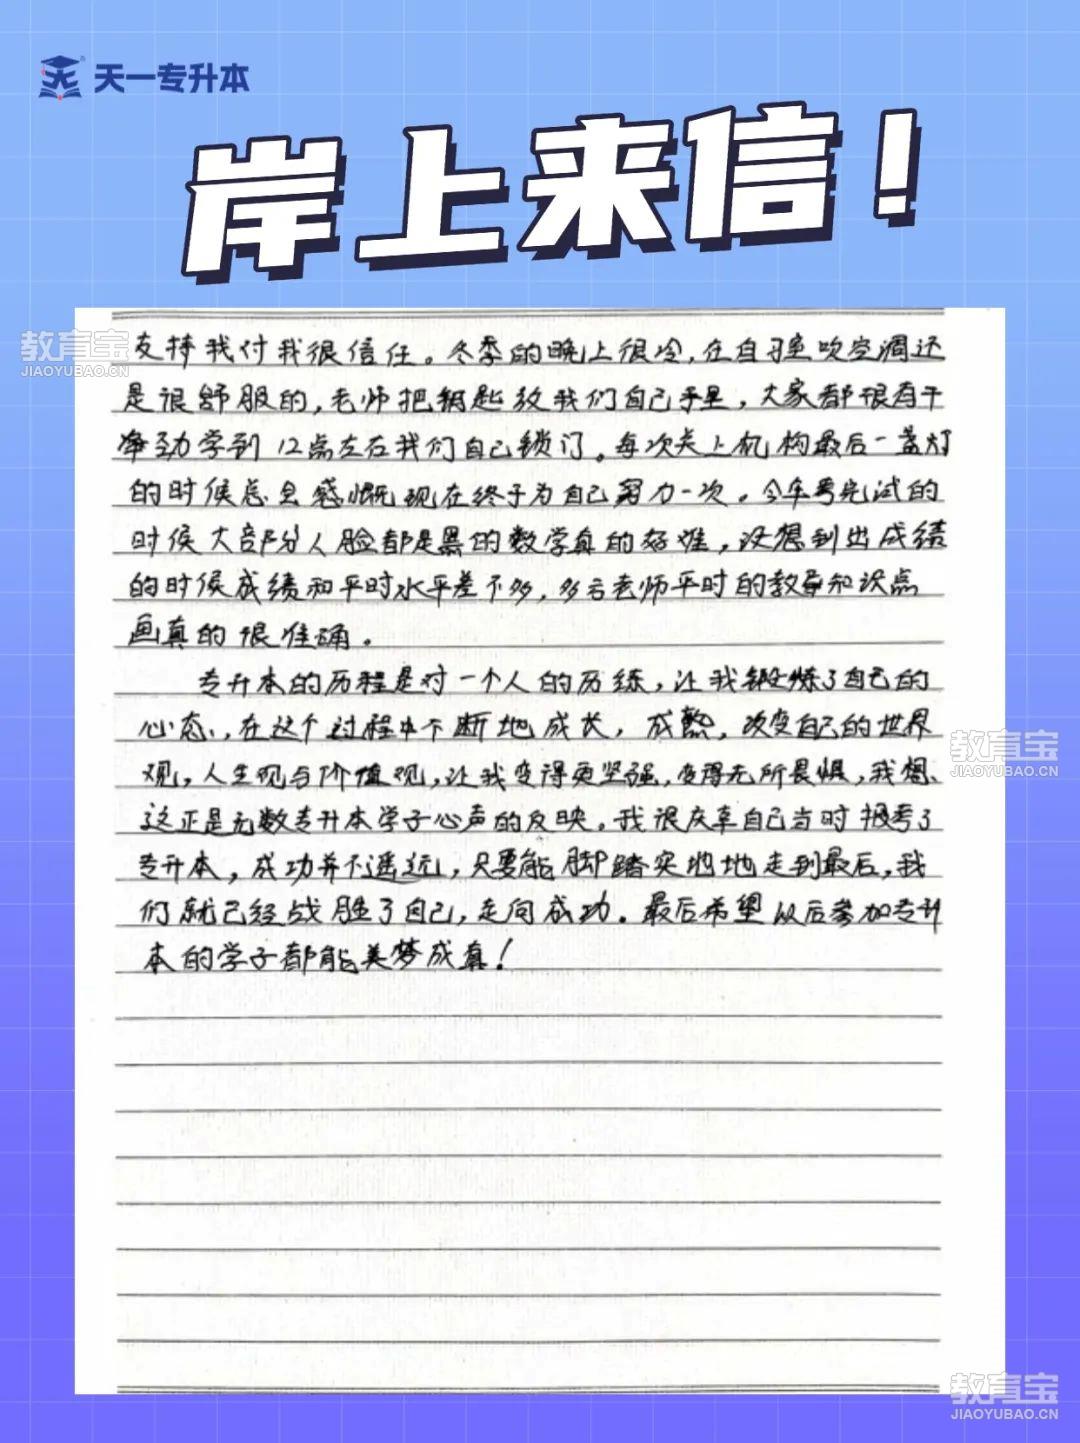 天一专升本
岸上来信！
教育宝
JIAOYUBAO.CN
支持我付我很信任。冬季的晚上很冷，在自习室吹空调还
是很舒服的，老师把钥匙放我们自己手里，大家都很有干
劲学到12点左右我们自己锁门。每次关上机构最后一盏灯
的时候总会感慨现在终于为自己努力一次。今年考完试的
时候大部分人脸都是黑的数学真的好难，没想到出成绩
的时候成绩和平时水平差不多，多亏老师平时的教导和识点
画真的很准确。
专升本的历程是对一个人的历练，让我锻炼了自己的
心态，在这个过程中不断地成长，成熟，改变自己的世界
观，人生观与价值观，让我变得更坚强，变得无所畏惧，我想
这正是无数专升本学子心声的反映。我很庆幸自己当时报考了
专升本，成功并不遥远，只要能脚踏实地地走到最后，我
们就已经战胜了自己，走向成功。最后希望从后参加专升
本的学子都能美梦成真！
教育宝
JIAOYUBAO.CN
教育宝
JIAOYUBAO.CN